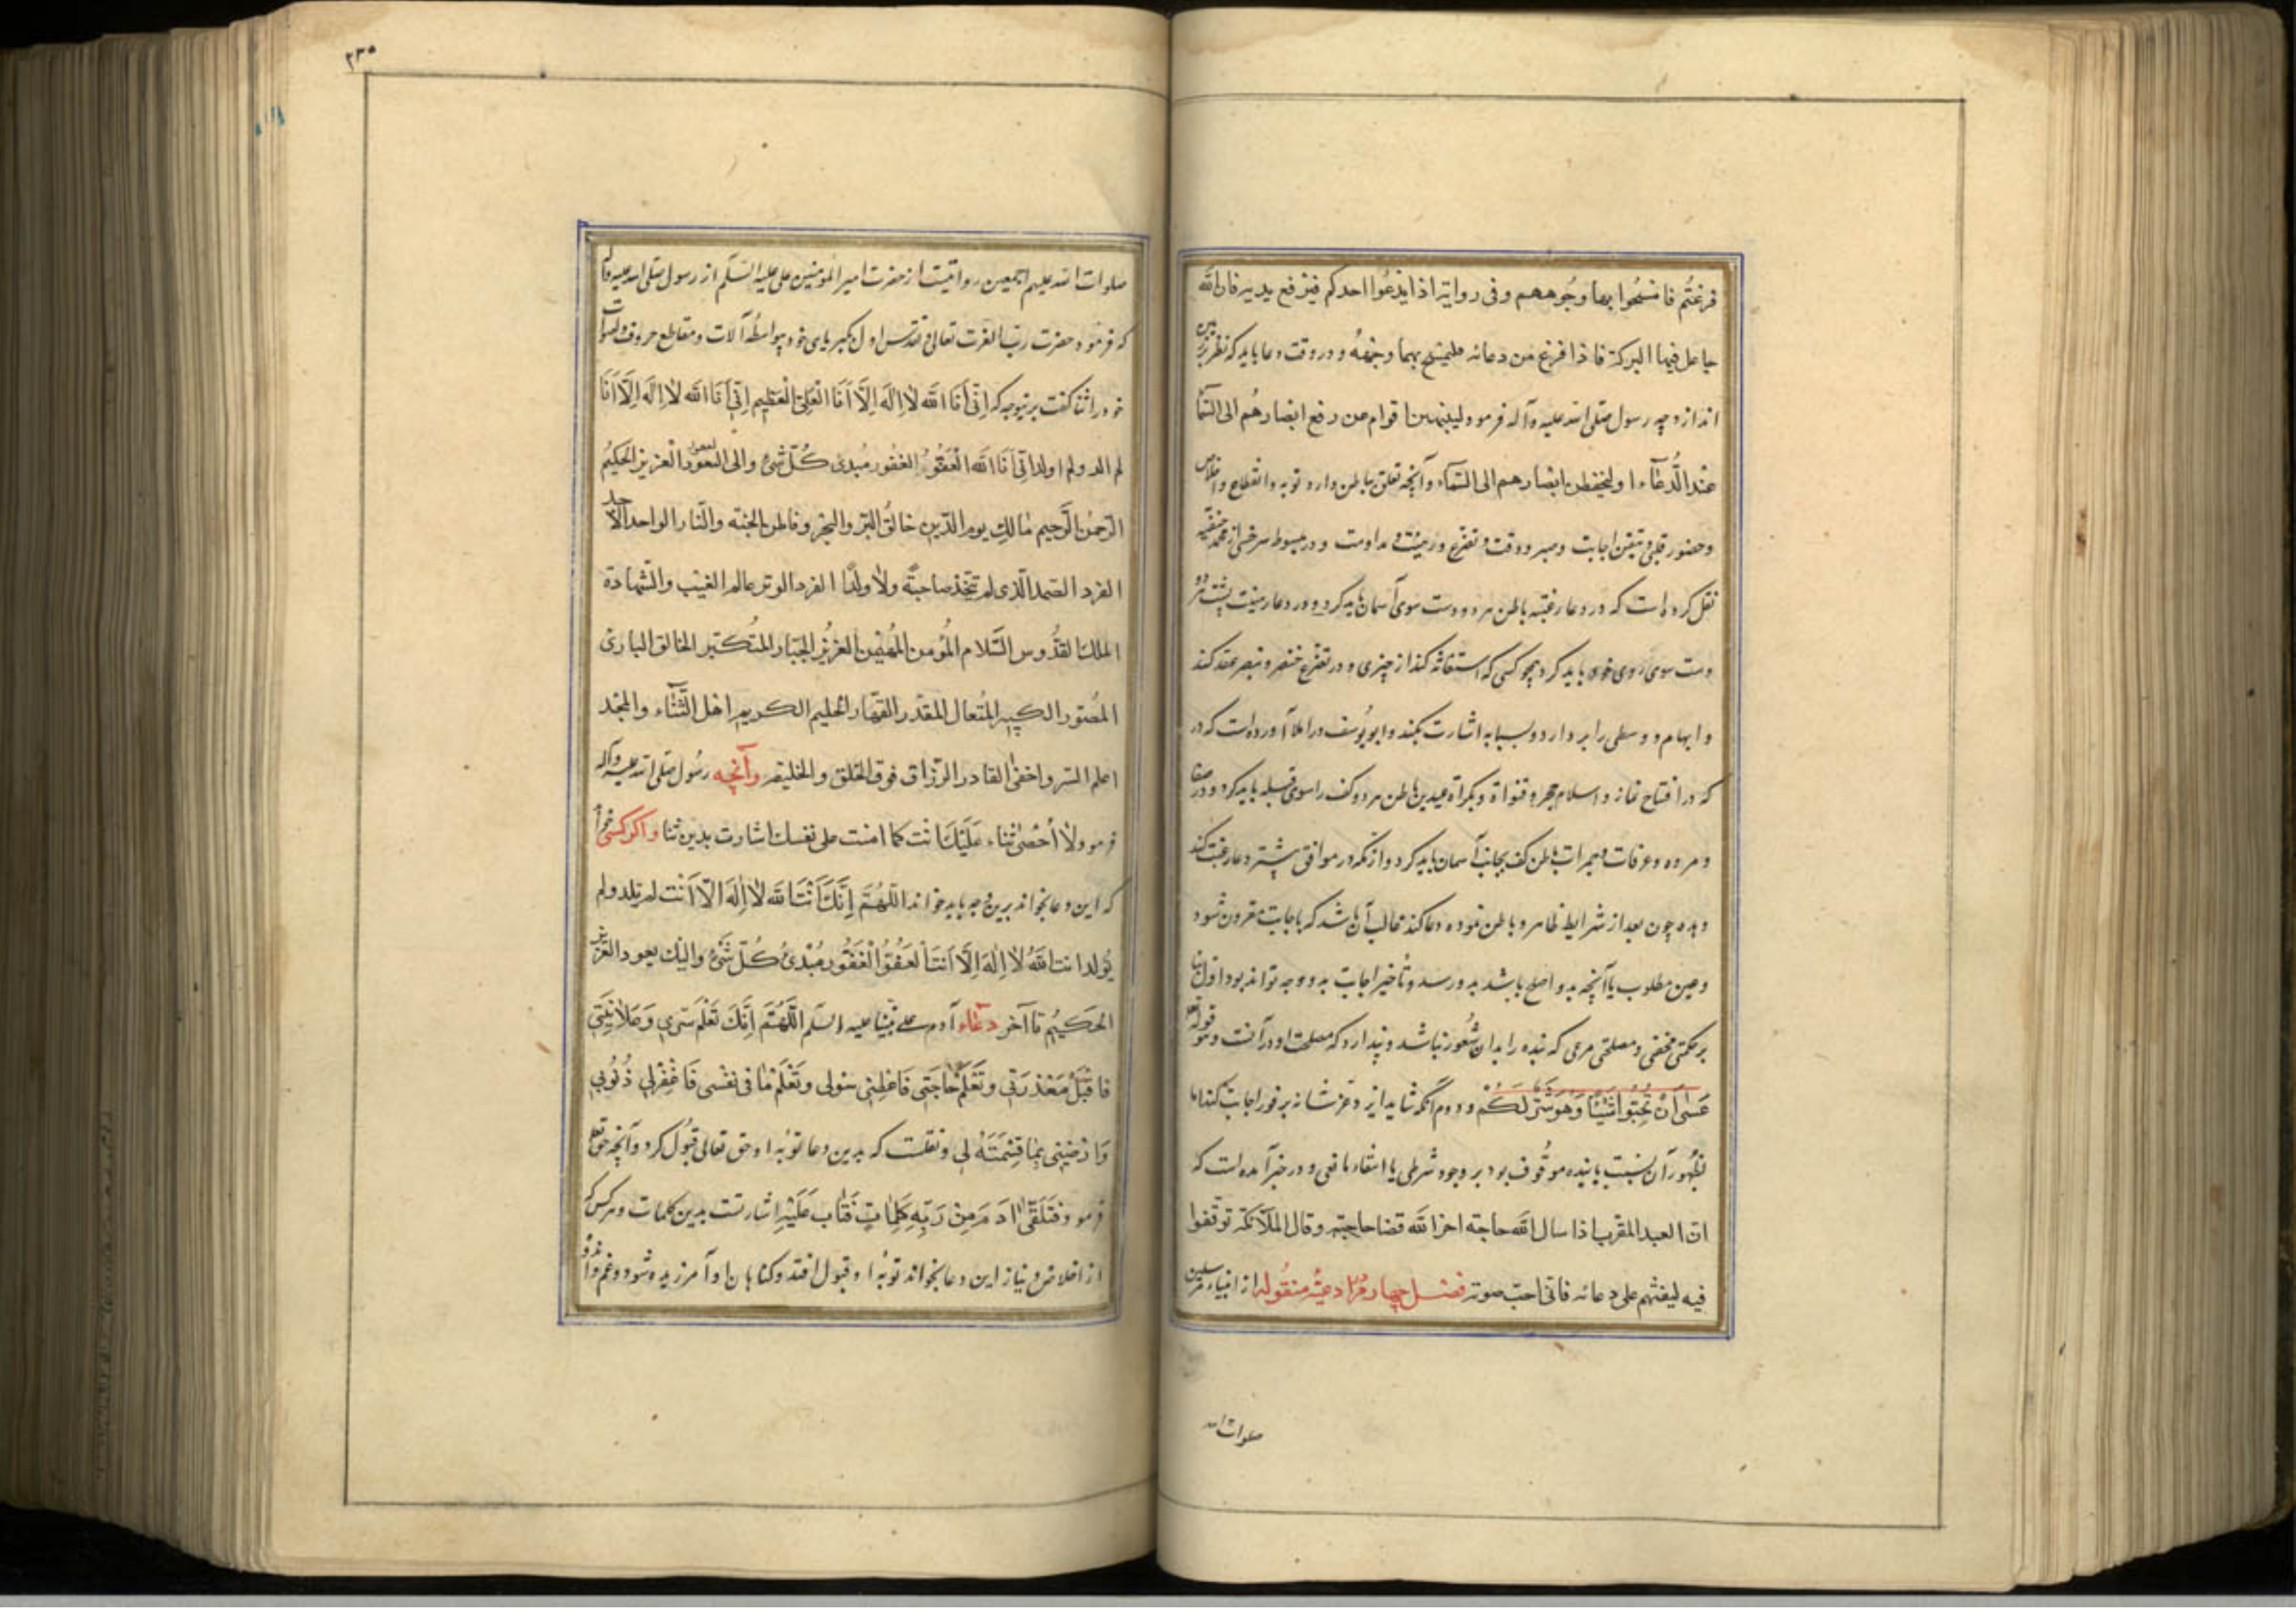 فرغتم فامسحوا بها وجوههم وفی روایة اذا یدعوا احدکم فیرفع یدیه فان الله
جاعل فیها البرکة فاذا فرغ من دعائه فلیمسح بهما وجهه و در وقت دعا باید که نظر بر زمین
اندازد چه رسول صلی الله علیه وآله فرمود لینتهین اقوام عن رفع ابصارهم الی السماء
عند الدعاء او لیخفطن ابصارهم الی السماء و آنچه تعلق بباطن دارد توبه و انقطاع و اخلاص
وحضور قلب و تیقن اجابت وصبر و وقت و تضرع و رهبت و مداومت و در مبسوط سرخسی از محمد حنفیه
نقل کرده است که در دعا رغبته باطن هر دو دست سوی آسمان باید کرد و در دعا رهبت پشت هر دو
دست سوی روی خود باید کرد همچو کسی که استغاثه کند از چیزی و در تضرع خنصر و بنصر عقد کند
و ابهام و وسطی را بر دارد و بسبابه اشارت کند و ابو یوسف در املا آورده است که در
که در افتتاح نماز و استلام حجر و قنوات و تکبرات عیدین باطن هر دو کف را سوی قبله باید کرد و در صفا
و مروه و عرفات و جمرات باطن کف بجانب آسمان باید کرد و از آنکه در مواقف بیشتر دعا رغبت کند
و بنده چون بعد از شرایط ظاهر و باطن نموده دعا کند غالب آن باشد که باجابت مقرون شود
وعین مطلوب یا آنچه بدو اصلح باشد بدو رسد و تأخیر اجابت بدو وجه تواند بود اول بنا
بر حکمتی مخفی و مصلحتی مرعی که بنده را بدان شعور نباشد و پندارد که مصلحت او در آنست و هو قوله تع
عسی ان تحبوا شیئا وهو شر لکم و دوم آنکه شاید ایزد عز شانه بر فور اجابت کند اما
ظهور آن نسبت با بنده موقوف بود بر وجود شرطی یا انتفاء مانعی و در خبر آمده است که
ان العبد المقرب اذا سال الله حاجته اخر الله قضا حاجته وقال الملائکة توقفوا
فیه لیفئهم علی دعائه فانی احب صوته فصل چهارم در ادعیهٔ منقوله از انبیاء مرسلین
صلوات الله
۲۳۵
صلوات الله علیهم اجمعین روایتست از حضرت امیر المؤمنین علی علیه السلام از رسول صلی الله علیه وآله
که فرمود حضرت رب العزت تعالی و تقدس اول بکبریای خود بیواسطه آلات و مقاطع حروف و اصوات
خود را ثنا گفت برینوجه که انی انا الله لا اله الا انا العلی العظیم انی انا الله لا اله الا انا
لم الد ولم اولد انی انا الله العفو الغفور مبدئ کل شئ والی یعود العزیز الحکیم
الرحمن الرحیم مالک یوم الدین خالق البر والبحر وفاطر الجنة والنار الواحد الاحد
الفرد الصمد الذی لم یتخذ صاحبة ولا ولدا الفرد الوتر عالم الغیب والشهادة
الملک القدوس السلام المؤمن المهیمن العزیز الجبار المتکبر الخالق الباری
المصور الکبیر المتعال المقدر القهار الحلیم الکریم اهل الثناء والمجد
اعلم السر واخفی القادر الرزاق فوق الخلق والخلیقه وآنچه رسول صلی الله علیه وآله
فرمود لا احصی ثناء علیک انت کما اثنت علی نفسک اشارت بدین ثنا واگر کسی خواهد
که این دعا بخواند برین وجه باید خواند اللهم انک انت الله لا اله الا انت لم تلد ولم
تولد انت الله لا اله الا انت العفو الغفور مبدئ کل شئ والیک یعود العزیز
الحکیم تا آخر دعاء آدم علی نبینا علیه السلم اللهم انک تعلم سری وعلانیتی
فاقبل معذرتی وتعلم حاجتی فاعطنی سولی وتعلم ما فی نفسی فاغفر لی ذنوبی
وارضینی بما قسمته لی ونقلست که بدین دعا توبهٔ او حق تعالی قبول کرد و آنچه حق تع
فرمود فتلقی ادم من ربه کلمات فتاب علیه اشارتست بدین کلمات و هر کس که
از اخلاص و نیاز این دعا بخواند توبهٔ او قبول افتد و گناهان او آمرزیده شود و غم و اندوه